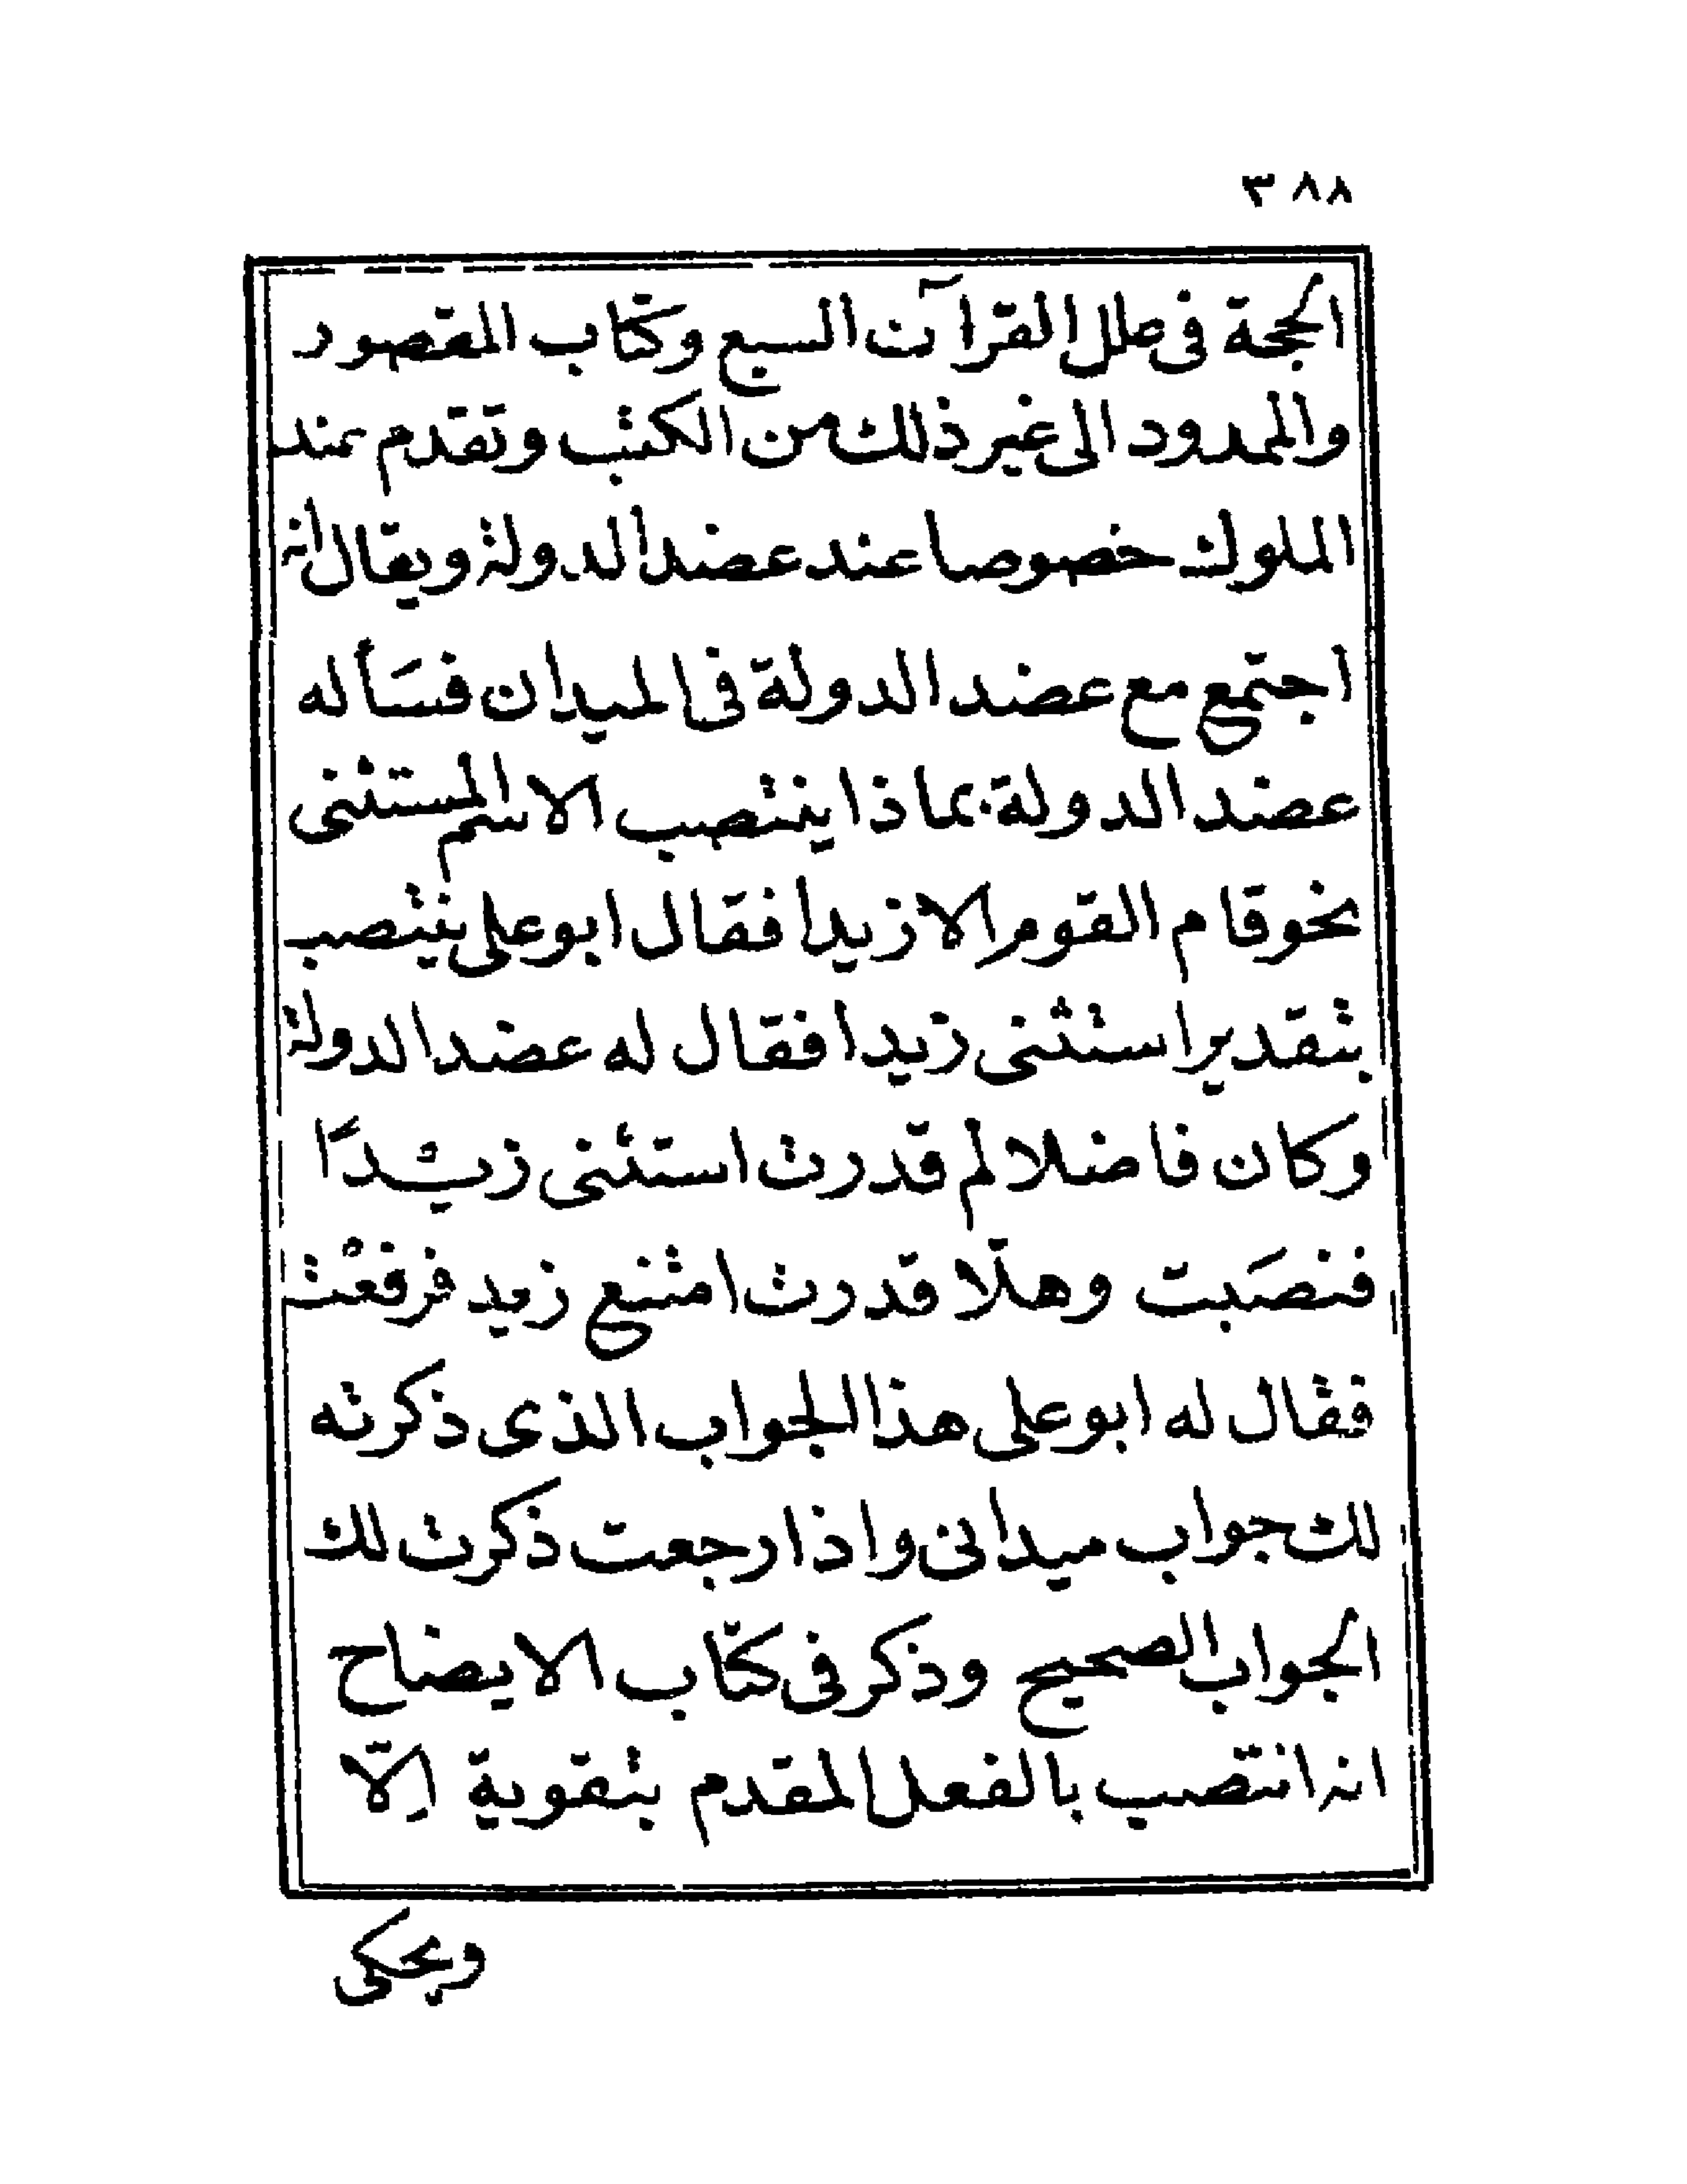 ٣٨٨
الحجة فى علل القرآن السبع وكتاب المقصور
والممدود الى غير ذلك من الكتب وتقدم عند
الملوك خصوصا عند عضد الدولة ويقال انه
اجتمع مع عضد الدولة فى الميدان فسَأله
عضد الدولة بماذا ينتصب الاسم المستثنى
نحو قام القوم الا زيدا فقال ابو على ينتصب
بتقدير استثنى زيدا فقال له عضد الدولة
وكان فاضلا لم قدرت استثنى زيدًا
فنصَبت وهلّا قدرت امتنع زيد فرفعْت
فقال له ابو على هذا الجواب الذى ذكرته
لك جواب ميدانى واذا رجعت ذكرت لك
الجواب الصحيح وذكر فى كتاب الايضاح
انه انتصب بالفعل المقدم بتقوية اِلّا
ويحكى